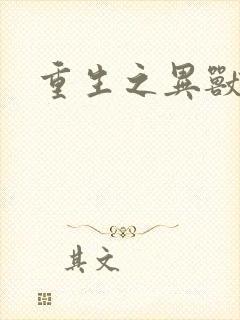 重生之異獸
其文